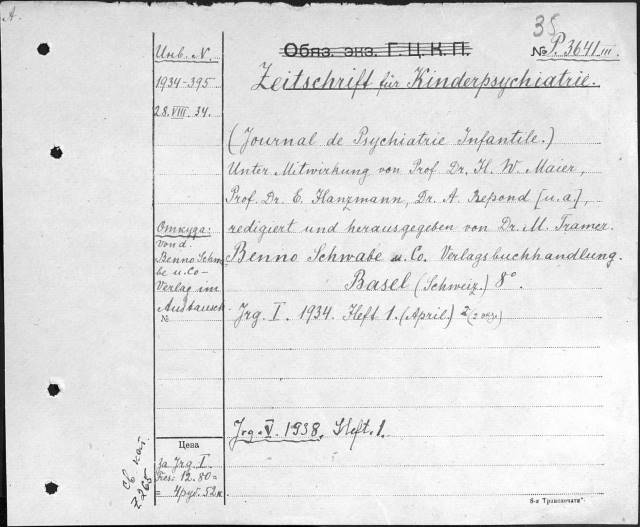 А.
35
Инв. N
1934-395
28.VIII.34.
Обяз. экз. Г. Ц. К. П.
№ P. 3641 III.
Zeitschrift für Kinderpsychiatrie.
(Journal de Psychiatrie Infantile.)
Unter Mitwirkung von Prof. Dr. H. W. Maier,
Prof. Dr. E. Hanzmann, Dr. A. Repond [u.a.],
redigiert und herausgegeben von Dr. M. Tramer.
Benno Schwabe u. Co. Verlagsbuchhandlung.
Basel (Schweiz.) 8°.
Jrg. I. 1934. Heft 1. (April.) 2
Jrg. V. 1938. Heft. 1.
Откуда:
von d.
Benno Schwa-
be u. Co-
Verlag im
Austausch
№
Цена
за Jrg. I
Frcs: 12.80 =
= 4 руб. 52 к.
Св. кат
Z 265
8-я Транспечати".